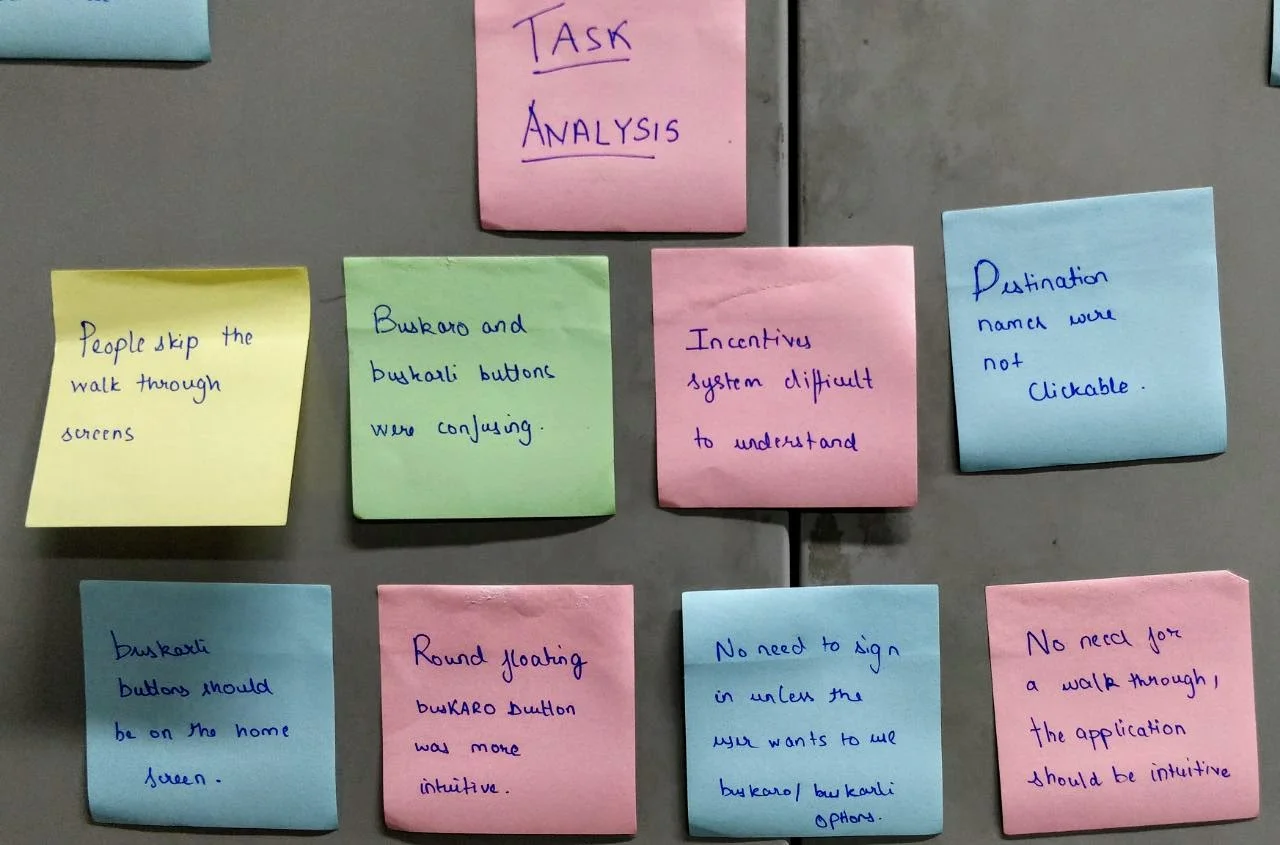 TASK
ANALYSIS
People skip the
walk through
screens
Buskaro and
buskarli buttons
were confusing.
Incentives
system difficult
to understand
Destination
names were
not
Clickable.
buskarli
buttons should
be on the home
screen.
Round floating
busKARO button
was more
intuitive.
No need to sign
in unless the
user wants to use
buskaro/ buskarli
options.
No need for
a walk through,
the application
should be intuitive